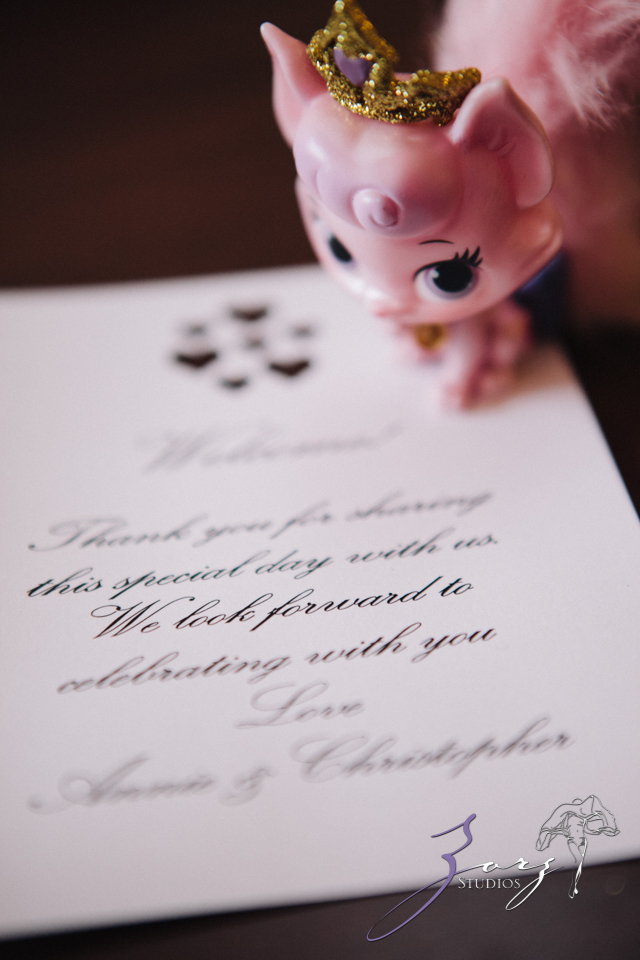 Welcome!
Thank you for sharing
this special day with us.
We look forward to
celebrating with you
Love
Annie & Christopher
Zorz
STUDIOS